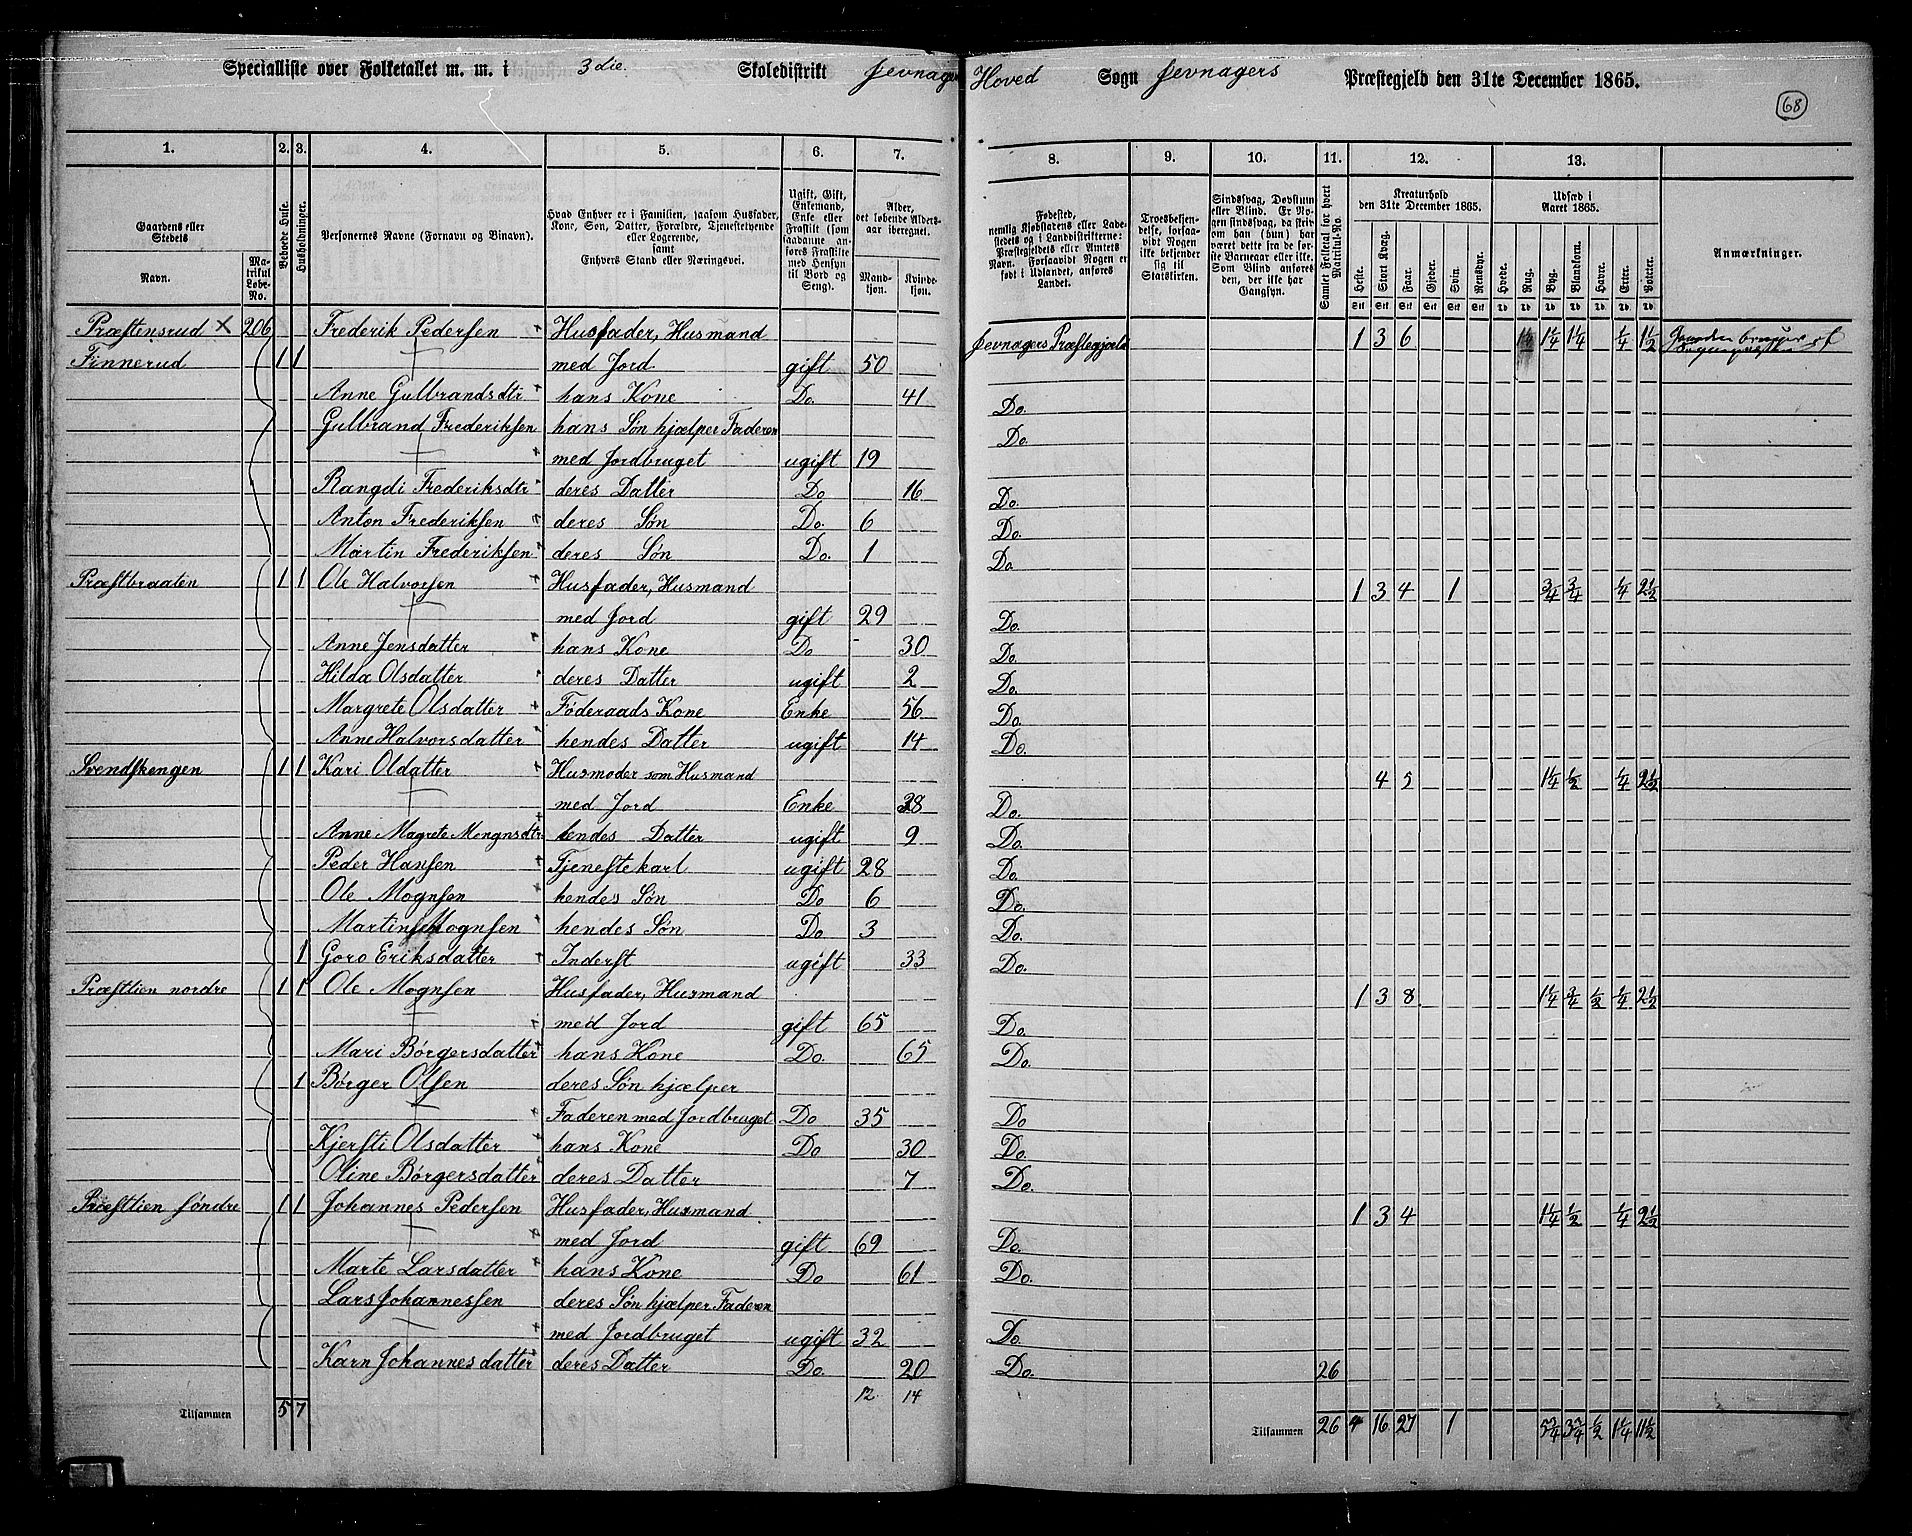 Specialliste over Folketallet m. m. i 3die. Skoledistrikt Jevnager Hoved Sogn Jevnagers Præstegjeld den 31te December 1865.
68
1. 2. 3. 4. 5. 6. 7. 8. 9. 10. 11. 12. 13.
Gaardens eller Stedets
Navn.
Matrikul Løbe-No.
Beboede Huse.
Husholdninger.
Personernes Navne (Fornavn og Binavn).
Hvad Enhver er i Familien, saasom Husfader, Kone, Søn, Datter, Forældre, Tjenestetyende eller Logerende, samt Enhvers Stand eller Næringsvei.
Ugift, Gift, Enkemand, Enke eller Fraskilt (som saadanne anføres Fraskilte med Hensyn til Bord og Seng).
Alder, det løbende Aldersaar iberegnet.
Mandkjøn. Kvindekjøn.
Fødested, nemlig Kjøbstadens eller Ladestedets og i Landdistrikterne: Præstegjeldets eller Amtets Navn. Forsaavidt Nogen er født i Udlandet, anføres Landet.
Troesbekjendelse, forsaavidt Nogen ikke bekjender sig til Statskirken.
Sindssvag, Døvstum eller Blind. Er Nogen sindssvag, da skrives om han (hun) har været dette fra de første Barneaar eller ikke. Som Blind anføres den, der ikke har Gangsyn.
Samlet Folketal for hvert Matrikul-No.
Kreaturhold den 31te December 1865.
Heste. Stort Kvæg. Faar. Gjeder. Svin. Rensdyr.
Udsæd i Aaret 1865.
Hvede. Rug. Byg. Blandkorn. Havre. Erter. Poteter.
Anmærkninger.
Præstensrud × 206 Frederik Pedersen Husfader, Husmand Jevnagers Præstegjeld 1 3 6 1¼ 1¼ ¼ 1½
Finnerud 1 1 med Jord gift 50
Anne Gulbrandsdtr hans Kone Do. 41 Do.
Gulbrand Frederiksen hans Søn hjælper Faderen Do.
med Jordbruget ugift 19
Rangdi Frederiksdtr deres Datter Do 16 Do.
Anton Frederiksen deres Søn Do. 6 Do.
Martin Frederiksen deres Søn Do. 1 Do
Præstbraaten 1 1 Ole Halvorsen Husfader, Husmand 1 3 4 1 ¾ ¾ ¼ 2½
med Jord gift 29 Do.
Anne Jensdatter hans Kone Do 30 Do.
Hilda Olsdatter deres Datter ugift 2 Do.
Margrete Olsdatter Føderaads Kone Enke 56 Do.
Anne Halvorsdatter hendes Datter ugift 14 Do.
Svendskengen 1 1 Kari Oldatter Husmoder som Husmand 4 5 1¼ ½ ¼ 2½
med Jord Enke 38 Do.
Anne Magrete Mongnsdtr hendes Datter ugift 9 Do.
Peder Hansen Tjenestekarl ugift 28 Do.
Ole Mognsen hendes Søn Do 6 Do.
Martin Mognsen hendes Søn Do 3 Do.
1 Goro Eriksdatter Inderst ugift 33 Do.
Præstlien nordre 1 1 Ole Mognsen Husfader, Husmand 1 3 8 1¼ ¾ ½ ¼ 2½
med Jord gift 65 Do.
Mari Børgersdatter hans Kone Do. 65 Do.
1 Børger Olsen deres Søn hjælper
Faderen med Jordbruget Do 35 Do
Kjersti Olsdatter hans Kone Do 30 Do.
Oline Børgersdatter deres Datter 7 Do.
Præstlien søndre 1 1 Johannes Pedersen Husfader, Husmand 1 3 4 1¼ ½ ¼ 2½
med Jord gift 69 Do.
Marte Larsdatter hans Kone Do 61 Do.
Lars Johannessen deres Søn hjælper Faderen
med Jordbruget ugift 32 Do.
Karn Johannesdatter deres Datter Do. 20 Do. 26
12 14
Tilsammen 5 7 Tilsammen 26 4 16 27 1 5¾ 3¾ ½ 1¼ 11½